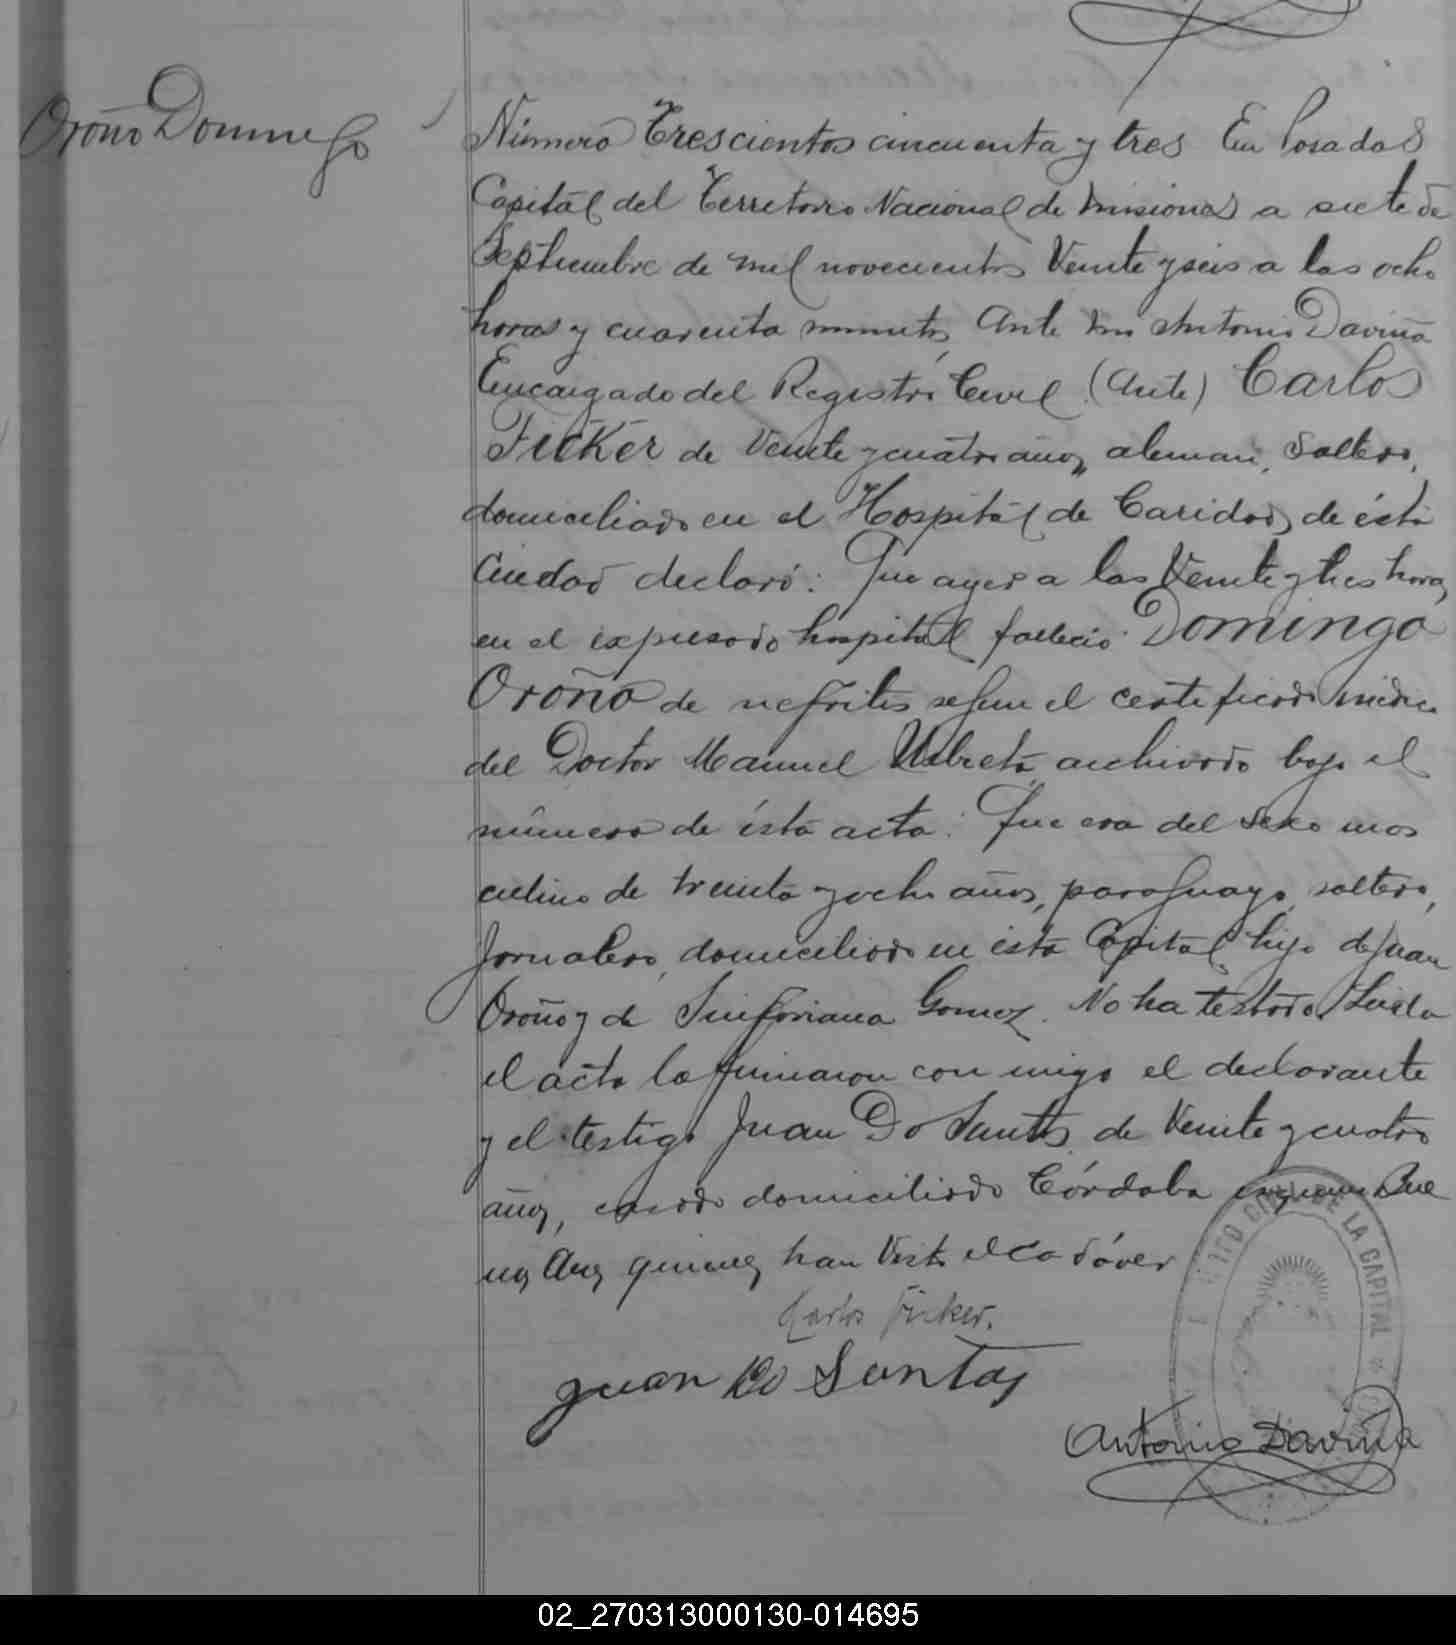 Oroño Domingo
Número Trescientos cincuenta y tres En Posadas
Capital del Territorio Nacional de Misiones a siete de
Septiembre de mil novecientos Veinte y seis a las ocho
horas y cuarenta minutos, Ante mi Antonio Daviña
Encargado del Registro Civil (Ante) Carlos
Ficker de Veinte y cuatro años, aleman, soltero,
domiciliado en el Hospital de Caridad, de ésta
Ciudad declaró: Que ayer a las Veinte y tres horas,
en el expresado hospital falleció Domingo
Oroño de nefritis segun el certificado médico
del Doctor Manuel archivado bajo el
número de ésta acta: Que era del sexo mas
culino de treinta y ocho años, paraguayo, soltero,
Jornalero, domiciliado en esta Capital, hijo de Juan
Oroño y de Sinforiana Gomez. No ha testado. Leida
el acta la firmaron con migo el declarante
y el testigo Juan Do Santos de Veinte y cuatro
años, casado domiciliado Córdoba esquina Bue
nos Aires quienes han Visto el cadáver
Carlos Ficker.
Juan Do Santos
Antonio Daviña
CIVIL DE LA CAPITAL
02_270313000130-014695